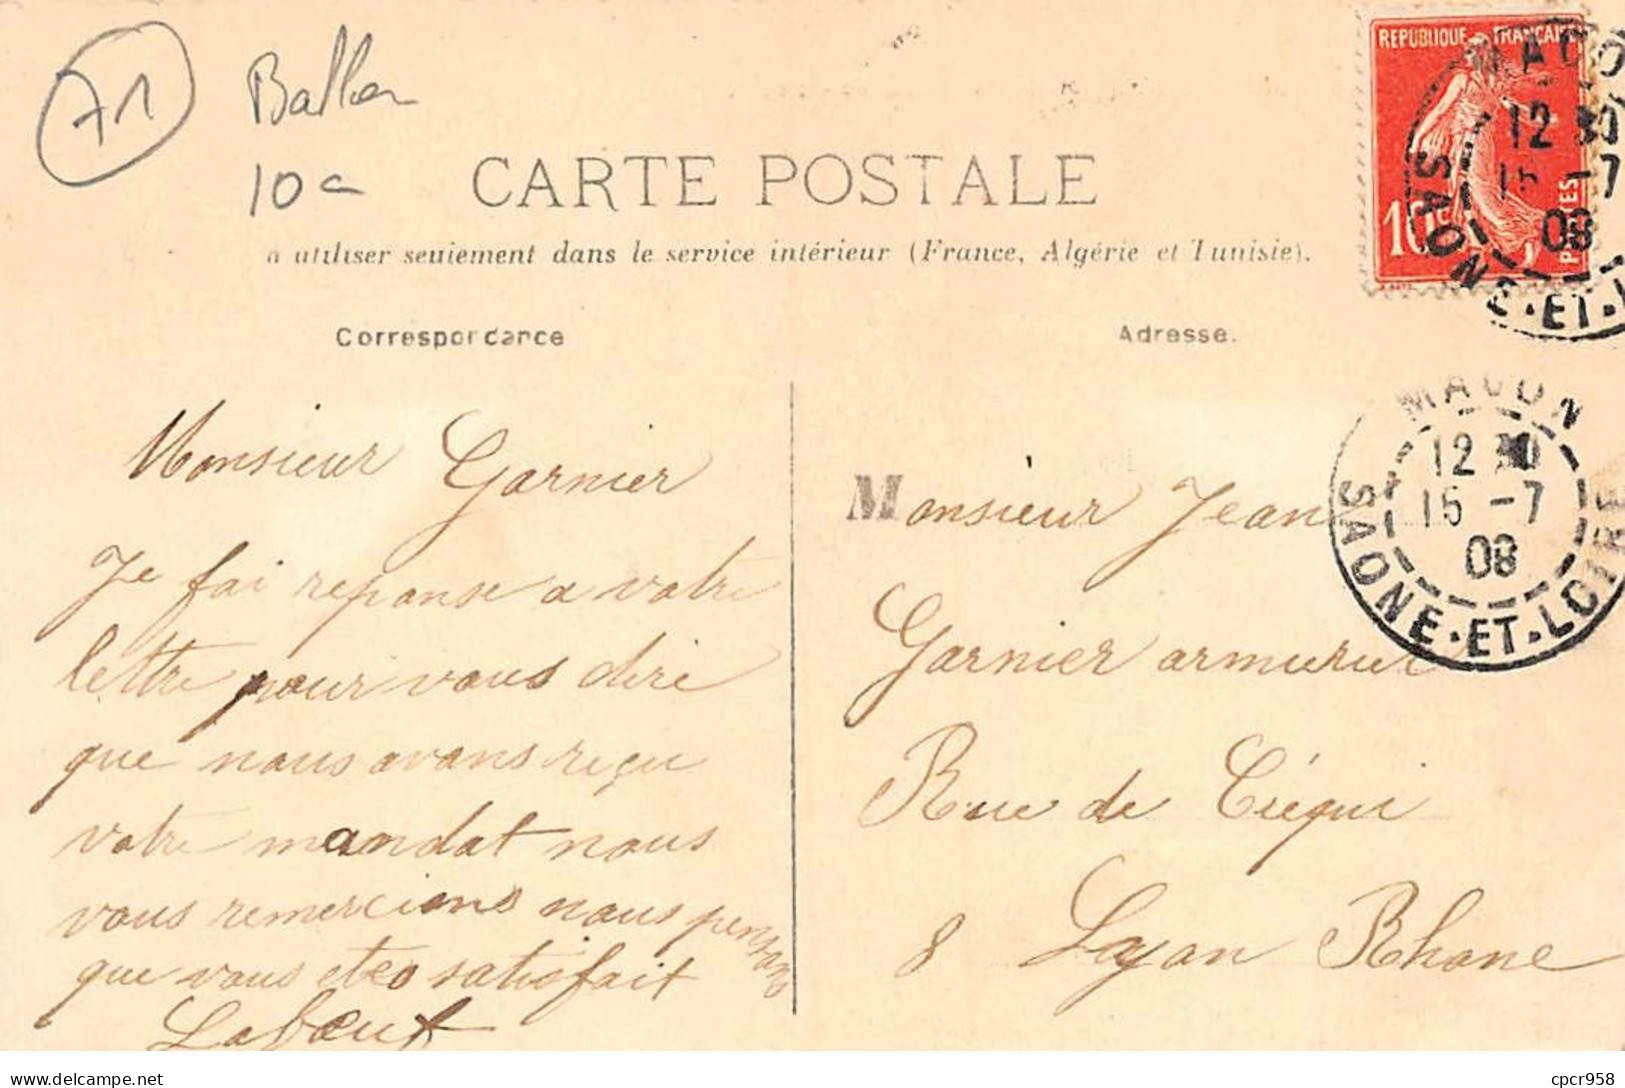 71
10c
CARTE POSTALE
à utiliser seulement dans le service intérieur (France, Algérie et Tunisie).
REPUBLIQUE FRANÇAISE
10c POSTES
MACON
12 30
15 -7
08
SAONE-ET-L
Correspondance
Adresse.
MACON
12 30
15 -7
08
SAONE-ET-LOIRE
Monsieur Garnier
Je fai reponse a votre
lettre pour vous dire
que nous avons reçu
votre mandat nous
vous remercions nous pensons
que vous etes satisfait
Labœuf
Monsieur Jean
Garnier armurier
Rue de Créqui
8 Lyon Rhone
delcampe.net
cpcr958